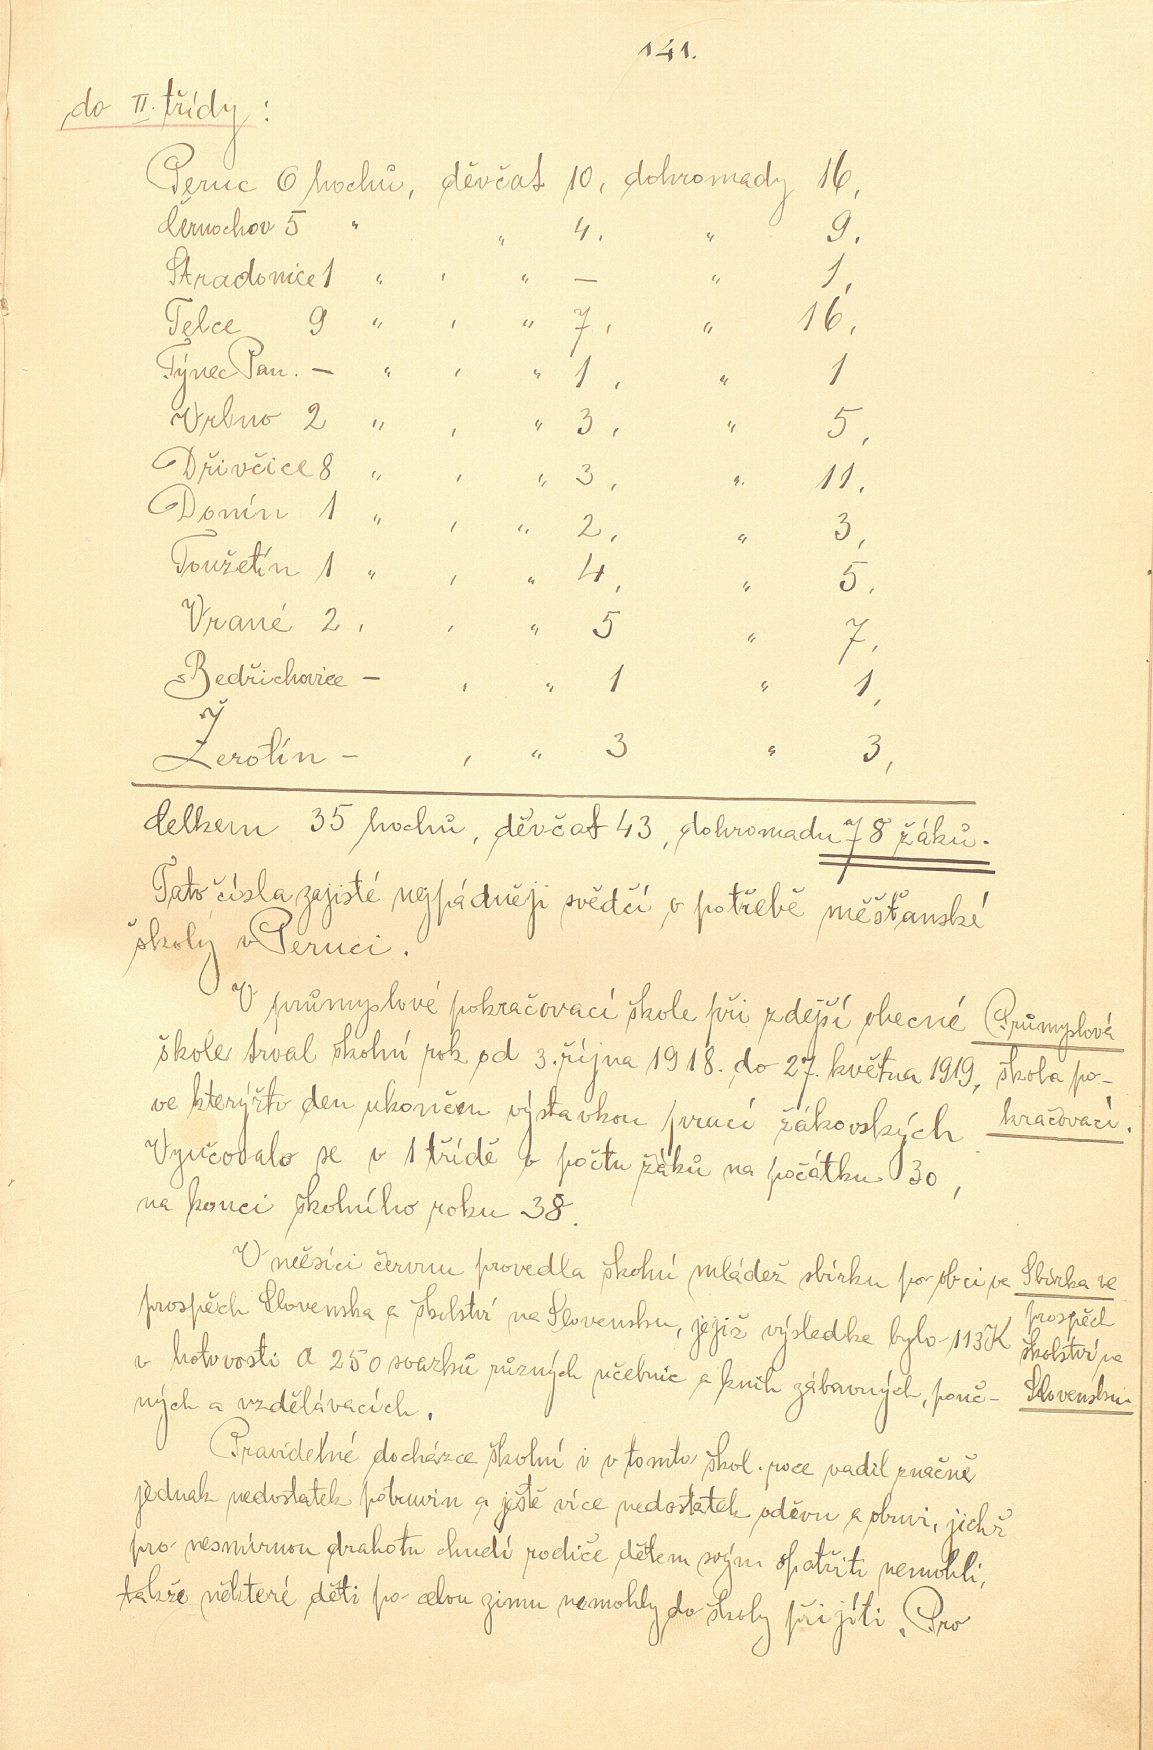 141.
do II. třídy:
Peruc 6 hochů, děvčat 10, dohromady 16,
Černochov 5 " " 4. " 9.
Stradonice 1 " , " — " 1,
Telce 9 " , " 7, " 16,
Týnec Pan. — " , " 1, " 1
Vrbno 2 " , " 3, " 5,
Dřivčice 8 " , " 3, " 11,
Donín 1 " , " 2, " 3,
Toužetín 1 " , " 4, " 5,
Vrané 2 , , " 5 " 7,
Bedřichovice — , " 1 " 1,
Žerotín — , " 3 " 3,
Celkem 35 hochů, děvčat 43, dohromadu 78 žáků.
Tato čísla zajisté nejpádněji svědčí o potřebě měšťanské
školy v Peruci.
V průmyslové pokračovací škole při zdejší obecné
škole trval školní rok od 3. října 1918. do 27. května 1919,
ve kterýžto den ukončen výstavkou prací žákovských
Vyučovalo se v 1 třídě o počtu žáků na počátku 30,
na konci školního roku 38.
Průmyslová
škola po-
kračovací.
V měsíci červnu provedla školní mládež sbírku po obci ve
prospěch Slovenska a školství na Slovensku, jejíž výsledke bylo 113 K
v hotovosti a 250 svazků různých učebnic a knih zábavných, pouč-
ných a vzdělávacích.
Sbírka ve
prospěch
školství na
Slovensku.
Pravidelné docházce školní i v tomto škol. roce vadil značně
jednak nedostatek potravin a ještě více nedostatek oděvu a obuvi, jichž
pro nesmírnou drahotu chudí rodiče dětem svým opatřiti nemohli,
takže některé děti po celou zimu nemohly do školy přijíti. Pro